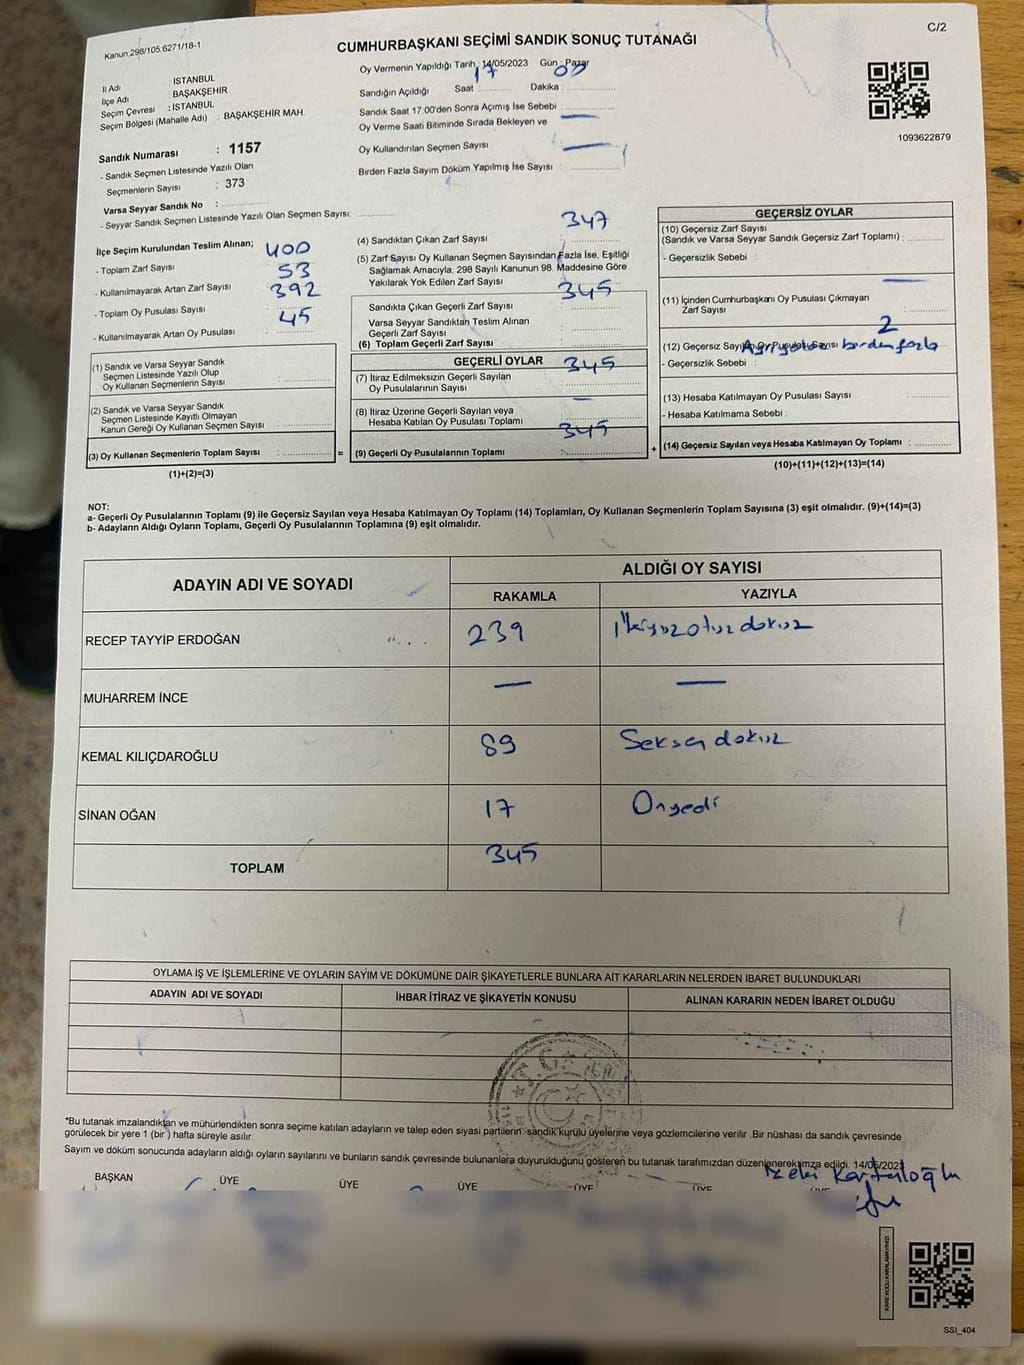 Kanun:298/105.6271/18-1
C/2
CUMHURBAŞKANI SEÇİMİ SANDIK SONUÇ TUTANAĞI
İl Adı İSTANBUL
İlçe Adı BAŞAKŞEHİR
Seçim Çevresi : İSTANBUL
Seçim Bölgesi (Mahalle Adı) : BAŞAKŞEHİR MAH.
Sandık Numarası : 1157
- Sandık Seçmen Listesinde Yazılı Olan
Seçmenlerin Sayısı : 373
Varsa Seyyar Sandık No :
- Seyyar Sandık Seçmen Listesinde Yazılı Olan Seçmen Sayısı:
Oy Vermenin Yapıldığı Tarih : 14/05/2023 Gün : Pazar
Sandığın Açıldığı Saat 17 Dakika : 00
Sandık Saat 17:00'den Sonra Açımış İse Sebebi : —
Oy Verme Saati Bitiminde Sırada Bekleyen ve
Oy Kullandırılan Seçmen Sayısı : —
Birden Fazla Sayım Döküm Yapılmış İse Sayısı :
1093622879
İlçe Seçim Kurulundan Teslim Alınan;
- Toplam Zarf Sayısı 400
- Kullanılmayarak Artan Zarf Sayısı : 53
- Toplam Oy Pusulası Sayısı : 392
- Kullanılmayarak Artan Oy Pusulası : 45
(1) Sandık ve Varsa Seyyar Sandık
Seçmen Listesinde Yazılı Olup
Oy Kullanan Seçmenlerin Sayısı :
(2) Sandık ve Varsa Seyyar Sandık
Seçmen Listesinde Kayıtlı Olmayan
Kanun Gereği Oy Kullanan Seçmen Sayısı :
(3) Oy Kullanan Seçmenlerin Toplam Sayısı :
(1)+(2)=(3)
=
(4) Sandıktan Çıkan Zarf Sayısı : 347
(5) Zarf Sayısı Oy Kullanan Seçmen Sayısından Fazla İse, Eşitliği
Sağlamak Amacıyla, 298 Sayılı Kanunun 98. Maddesine Göre
Yakılarak Yok Edilen Zarf Sayısı :
Sandıkta Çıkan Geçerli Zarf Sayısı : 345
Varsa Seyyar Sandıktan Teslim Alınan
Geçerli Zarf Sayısı :
(6) Toplam Geçerli Zarf Sayısı :
GEÇERLİ OYLAR
(7) İtiraz Edilmeksizin Geçerli Sayılan
Oy Pusulalarının Sayısı : 345
(8) İtiraz Üzerine Geçerli Sayılan veya
Hesaba Katılan Oy Pusulası Toplamı : —
(9) Geçerli Oy Pusulalarının Toplamı : 345
+
GEÇERSİZ OYLAR
(10) Geçersiz Zarf Sayısı
(Sandık ve Varsa Seyyar Sandık Geçersiz Zarf Toplamı) :
- Geçersizlik Sebebi :
(11) İçinden Cumhurbaşkanı Oy Pusulası Çıkmayan
Zarf Sayısı : —
(12) Geçersiz Sayılan Oy Pusulası Sayısı 2
- Geçersizlik Sebebi : birden fazla
(13) Hesaba Katılmayan Oy Pusulası Sayısı :
- Hesaba Katılmama Sebebi :
(14) Geçersiz Sayılan veya Hesaba Katılmayan Oy Toplamı :
(10)+(11)+(12)+(13)=(14)
NOT:
a- Geçerli Oy Pusulalarının Toplamı (9) ile Geçersiz Sayılan veya Hesaba Katılmayan Oy Toplamı (14) Toplamları, Oy Kullanan Seçmenlerin Toplam Sayısına (3) eşit olmalıdır. (9)+(14)=(3)
b- Adayların Aldığı Oyların Toplamı, Geçerli Oy Pusulalarının Toplamına (9) eşit olmalıdır.
ADAYIN ADI VE SOYADI ALDIĞI OY SAYISI
RAKAMLA YAZIYLA
RECEP TAYYİP ERDOĞAN 239 ikiyüzotuzdokuz
MUHARREM İNCE — —
KEMAL KILIÇDAROĞLU 89 Seksendokuz
SİNAN OĞAN 17 Onyedi
TOPLAM 345
OYLAMA İŞ VE İŞLEMLERİNE VE OYLARIN SAYIM VE DÖKÜMÜNE DAİR ŞİKAYETLERLE BUNLARA AİT KARARLARIN NELERDEN İBARET BULUNDUKLARI
ADAYIN ADI VE SOYADI İHBAR İTİRAZ VE ŞİKAYETİN KONUSU ALINAN KARARIN NEDEN İBARET OLDUĞU
T.C.
*Bu tutanak imzalandıktan ve mühürlendikten sonra seçime katılan adayların ve talep eden siyasi partilerin sandık kurulu üyelerine veya gözlemcilerine verilir .Bir nüshası da sandık çevresinde
görülecek bir yere 1 (bir ) hafta süreyle asılır.
Sayım ve döküm sonucunda adayların aldığı oyların sayılarını ve bunların sandık çevresinde bulunanlara duyurulduğunu gösteren bu tutanak tarafımızdan düzenlenerek imza edildi. 14/05/2023
BAŞKAN ÜYE ÜYE ÜYE ÜYE ÜYE
KARE KODU KARALAMAYINIZ!
SSI_404